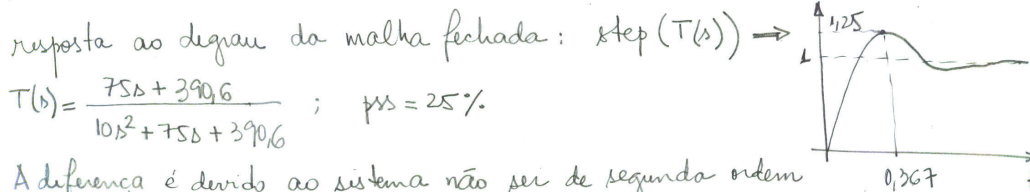 resposta ao degrau da malha fechada: step(T(s)) →
1,25
1
T(s) = 75s + 390,6 / 10s² + 75s + 390,6 ; pss = 25%
0,367
A diferença é devido ao sistema não ser de segunda ordem